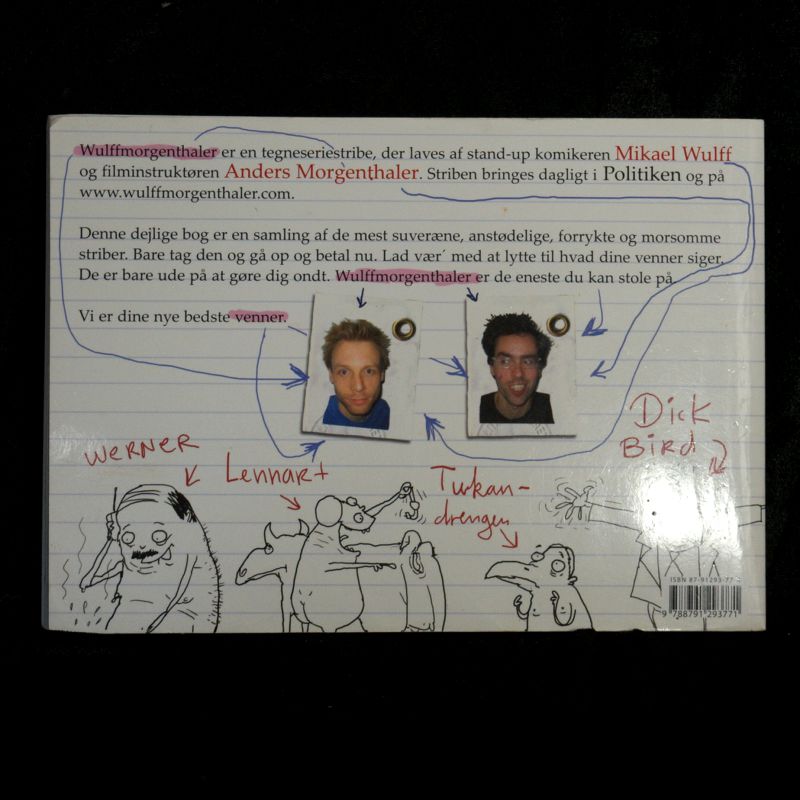 Wulffmorgenthaler er en tegneseriestribe, der laves af stand-up komikeren Mikael Wulff
og filminstruktøren Anders Morgenthaler. Striben bringes dagligt i Politiken og på
www.wulffmorgenthaler.com.
Denne dejlige bog er en samling af de mest suveræne, anstødelige, forrykte og morsomme
striber. Bare tag den og gå op og betal nu. Lad vær´ med at lytte til hvad dine venner siger.
De er bare ude på at gøre dig ondt. Wulffmorgenthaler er de eneste du kan stole på.
Vi er dine nye bedste venner.
Werner
Lennart
Tukan-
drengen
Dick
Bird
ISBN 87-91293-77-
9 788791 293771